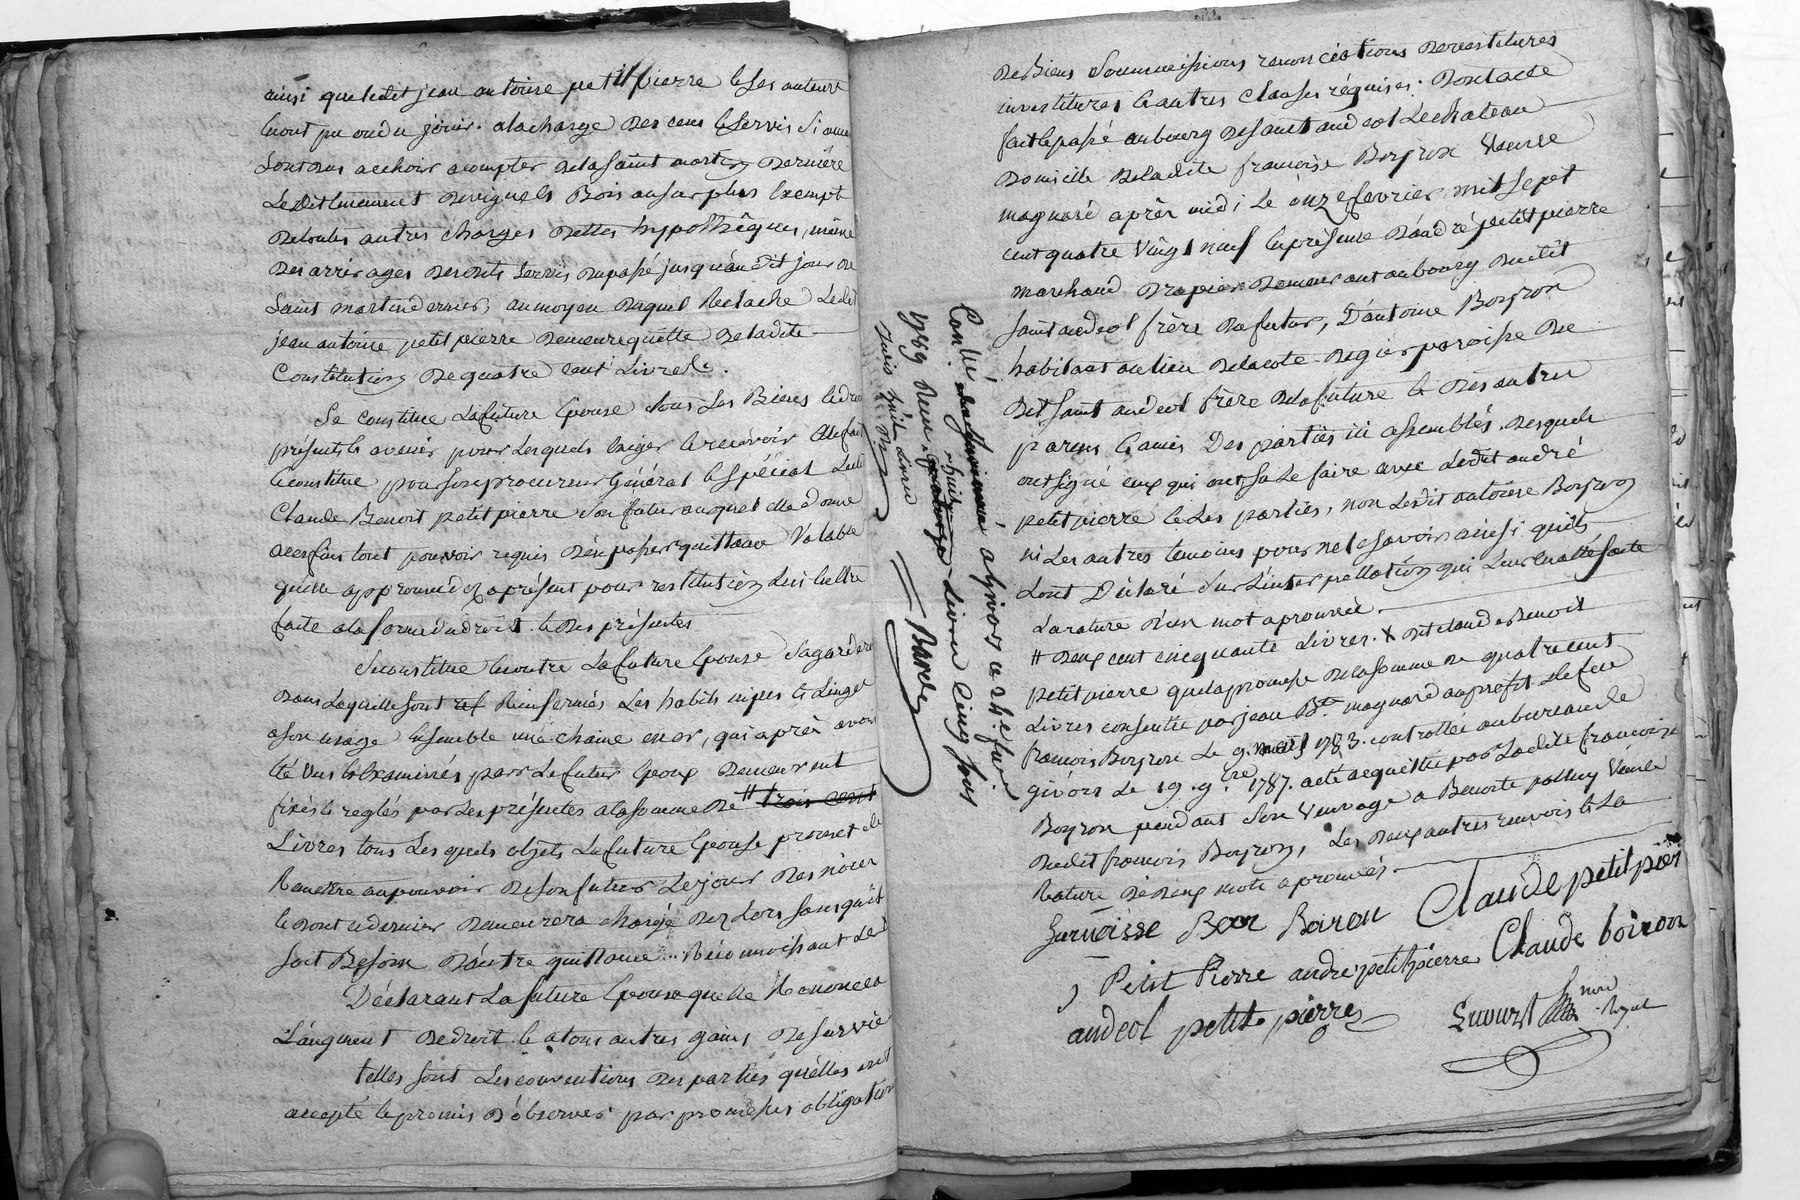 ainsi que ledit jean antoine petitpierre & ses auteurs
en ont pu ou du jouir. a la charge des cens & servis si aucun
sont dus a echoir a compter de la saint martin derniere
Ledit tenement de vigne & Bois au surplus exempt
De toutes autres charges dettes hypothêques, même
Des arrérages desdits servis du passé jusqu'audit jour de
saint martin dernier, au moyen duquel Relache Ledit
jean antoine petitpierre demeure quitte de ladite
Constitution de quatre cent Livres.
Se constitue La future Epouse tous ses Biens & droits
présents & avenir pour Lesquels exiger & recevoir Elle fait
& constitue pour son procureur Général & spécial Ledit
Claude Benoit petitpierre son futur auquel elle donne
a ces fins tout pouvoir requis d'en passer quittance Valable
qu'elle approuve dez a présent pour restitution Lui être
faite a la forme du droit & des présentes
Se constitue en outre La future Epouse sa garderobe
Dans Laquelle sont ref Rienfermés Les habits nipes & Linges
a son usage Ensemble une chaine en or, qui après avoir
été Vus & Examinés par Le futur Epoux Demeurent
fixés & reglés par Les présentes a la somme de # trois cent
Livres tous Lesquels objets La future Epouse promet de
Remettre au pouvoir de son futur Le jour des nôces
& dont ce dernier Demeurera chargé dez Lors sans qu'il
soit Besoin d'autre quittance Réconnoissant Le X
Déclarant La future Epouse quelle Renonce a
L'augment de droit & a tous autres gains de survie
telles sont Les conventions des parties qu'elles ont
accepté & promis d'observer par promesses obligation
De Biens Soumissions renonciations devestitures
investitures & autres clauses réquises. Dont acte
fait & passé au bourg de saint andeol Le chateau
Domicile de Ladite françoise Boyron Veuve
magnard après midi Le onze fevrier, mil sept
cent quatre vingt neuf En présence d'andré petitpierre
marchand drapier demeurant au bourg dudit
saint andeol frère du futur, D'antoine Boyron
habitant au lieu de la cote - de gier paroisse du
dit saint andeol frère de la future & des autres
parens & amis Des parties ici assemblés. Desquels
ont signé eux qui ont su Le faire avec Ledit andré
petitpierre & Les parties, non Ledit antoine Boyron
ni Les autres temoins pour ne le savoir ainsi qu'ils
L'ont Déclaré sur L'interpellation qui Leur En a été faite
La rature d'un mot aprouvée.
# Deux cent cinquante Livres. X dit claude Benoit
petitpierre que la promesse de la somme de quatre cent
Livres consentie par jean Bte magnard au profit de feu
francois Boyron Le 9. 1783. controllée au bureau de
givors Le 19. 9bre 1787. a été acquittée par Ladite francoise
Boyron pendant son Veuvage a Benoite Veuve
dudit francois Boyron, Les Deux autres renvois & La
Rature de Deux mots aprouvés.
Boiron Claude petit pier
Petit Pierre andre petitpierre Claude boiron
andeol petit pierre nore Royal
Conllé a givors ce 24 fev
1789 Recu huit Livres Cinq sous
Livres
Barde